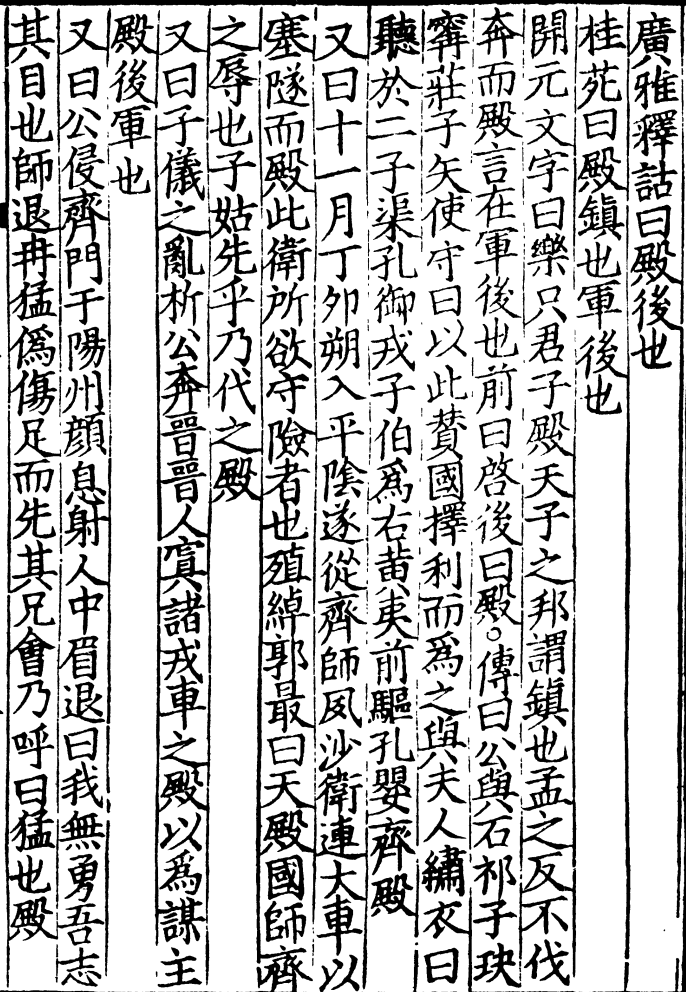 廣雅釋詁曰殿後也
桂苑曰殿鎮也軍後也
開元文字曰樂只君子殿天子之邦謂鎮也孟之反不伐
奔而殿言在軍後也前曰啓後曰殿○傳曰公與石祁子玦
寗莊子矢使守曰以此賛國擇利而爲之與夫人繡衣曰
聽於二子渠孔御戎子伯爲右黄夷前驅孔嬰齊殿
又曰十一月丁夘朔入平隂遂從齊師夙沙衛連大車以
塞隧而殿此衛所欲守險者也殖綽郭最曰天殿國師齊
之辱也子姑先乎乃代之殿
又曰子儀之亂析公奔晉晉人寘諸戎車之殿以爲謀主
殿後軍也
又曰公侵齊門于陽州顔息射人中眉退曰我無勇吾志
其目也師退冉猛僞傷足而先其兄會乃呼曰猛也殿